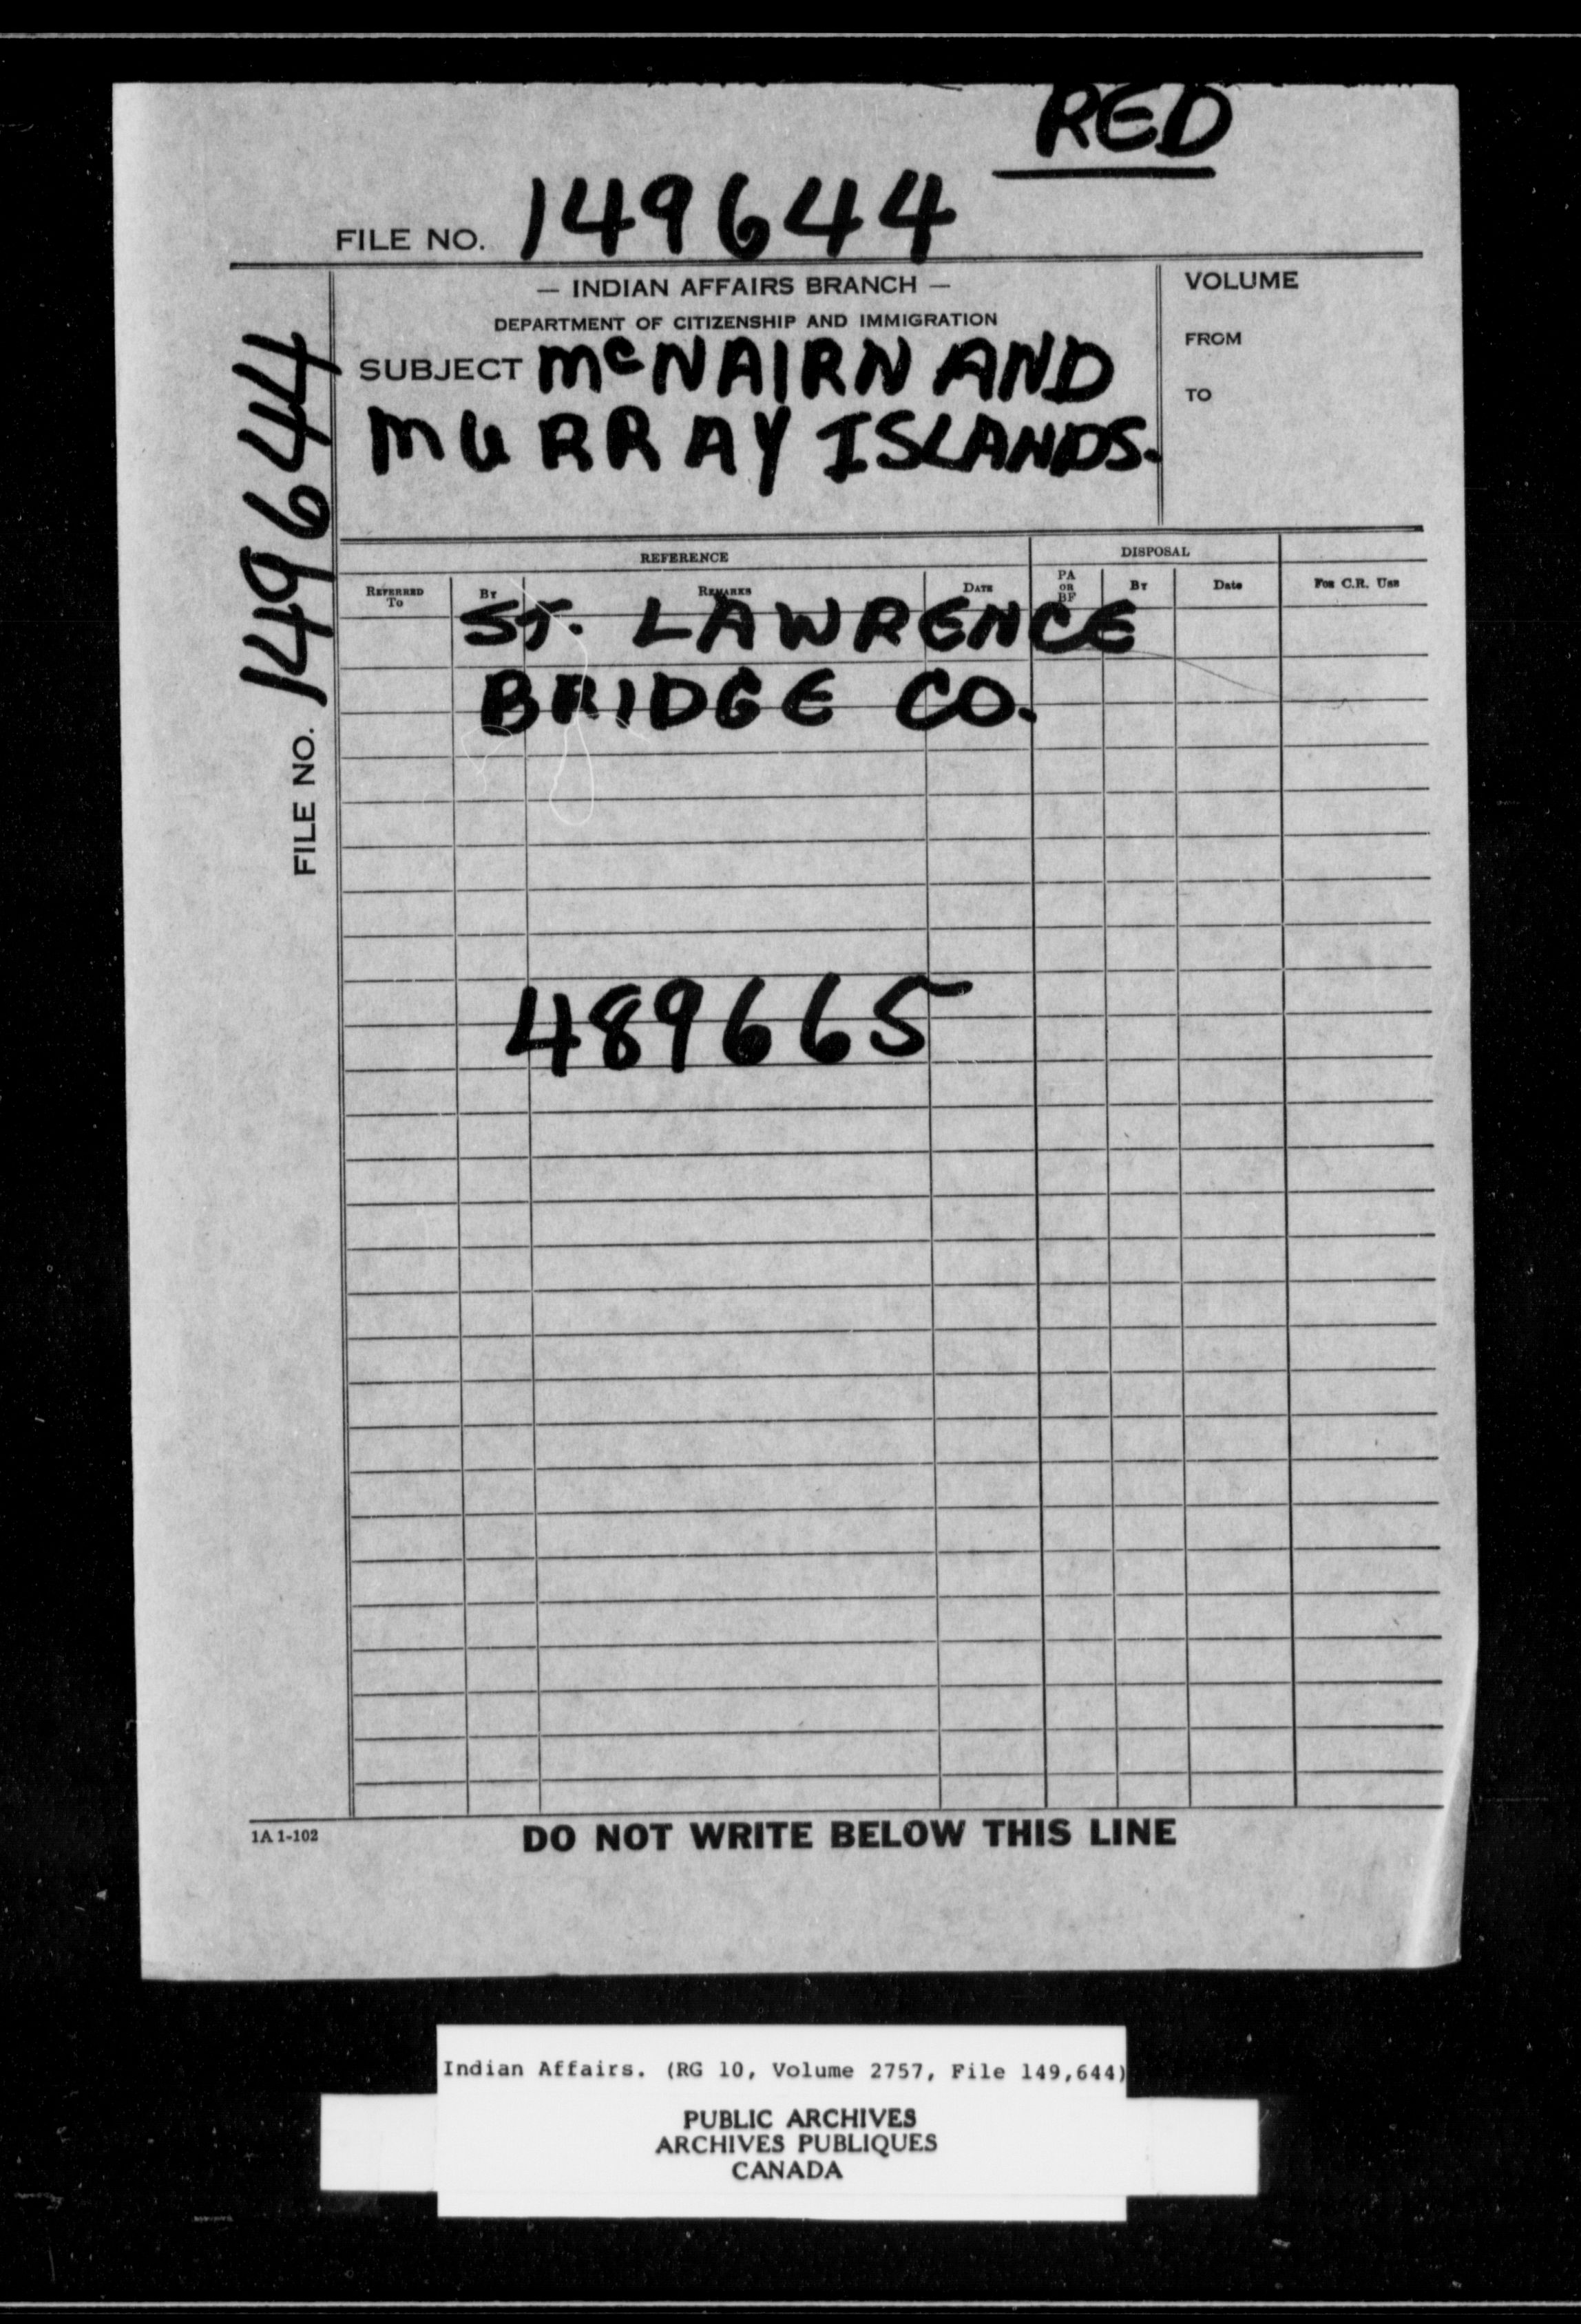 RED
FILE NO. 149644
— INDIAN AFFAIRS BRANCH —
DEPARTMENT OF CITIZENSHIP AND IMMIGRATION
SUBJECT McNAIRN AND
MURRAY ISLANDS.
VOLUME
FROM
TO
FILE NO. 149644
REFERENCE
DISPOSAL
REFERRED TO
BY
REMARKS
DATE
PA OR BF
BY
Date
FOR C.R. USE
ST. LAWRENCE
BRIDGE CO.
489665
1A 1-102
DO NOT WRITE BELOW THIS LINE
Indian Affairs. (RG 10, Volume 2757, File 149,644)
PUBLIC ARCHIVES
ARCHIVES PUBLIQUES
CANADA